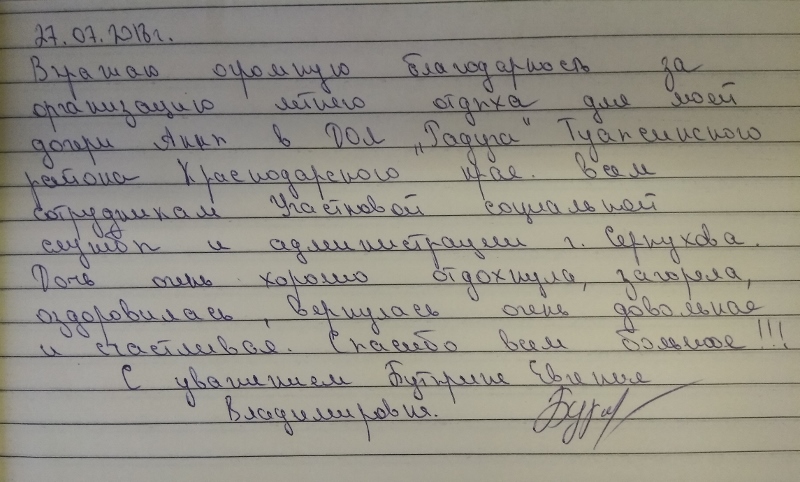 27.07.2018г.
Выражаю огромную благодарность за
организацию летнего отдыха для моей
дочери Анны в ДОЛ „Радуга" Туапсинского
района Краснодарского края. всем
сотрудникам Участковой социальной
службы и администрации г. Серпухова.
Дочь очень хорошо отдохнула, загорела,
оздоровилась, вернулась очень довольная
и счастливая. Спасибо всем большое!!!
С уважением Евгения
Владимировна.